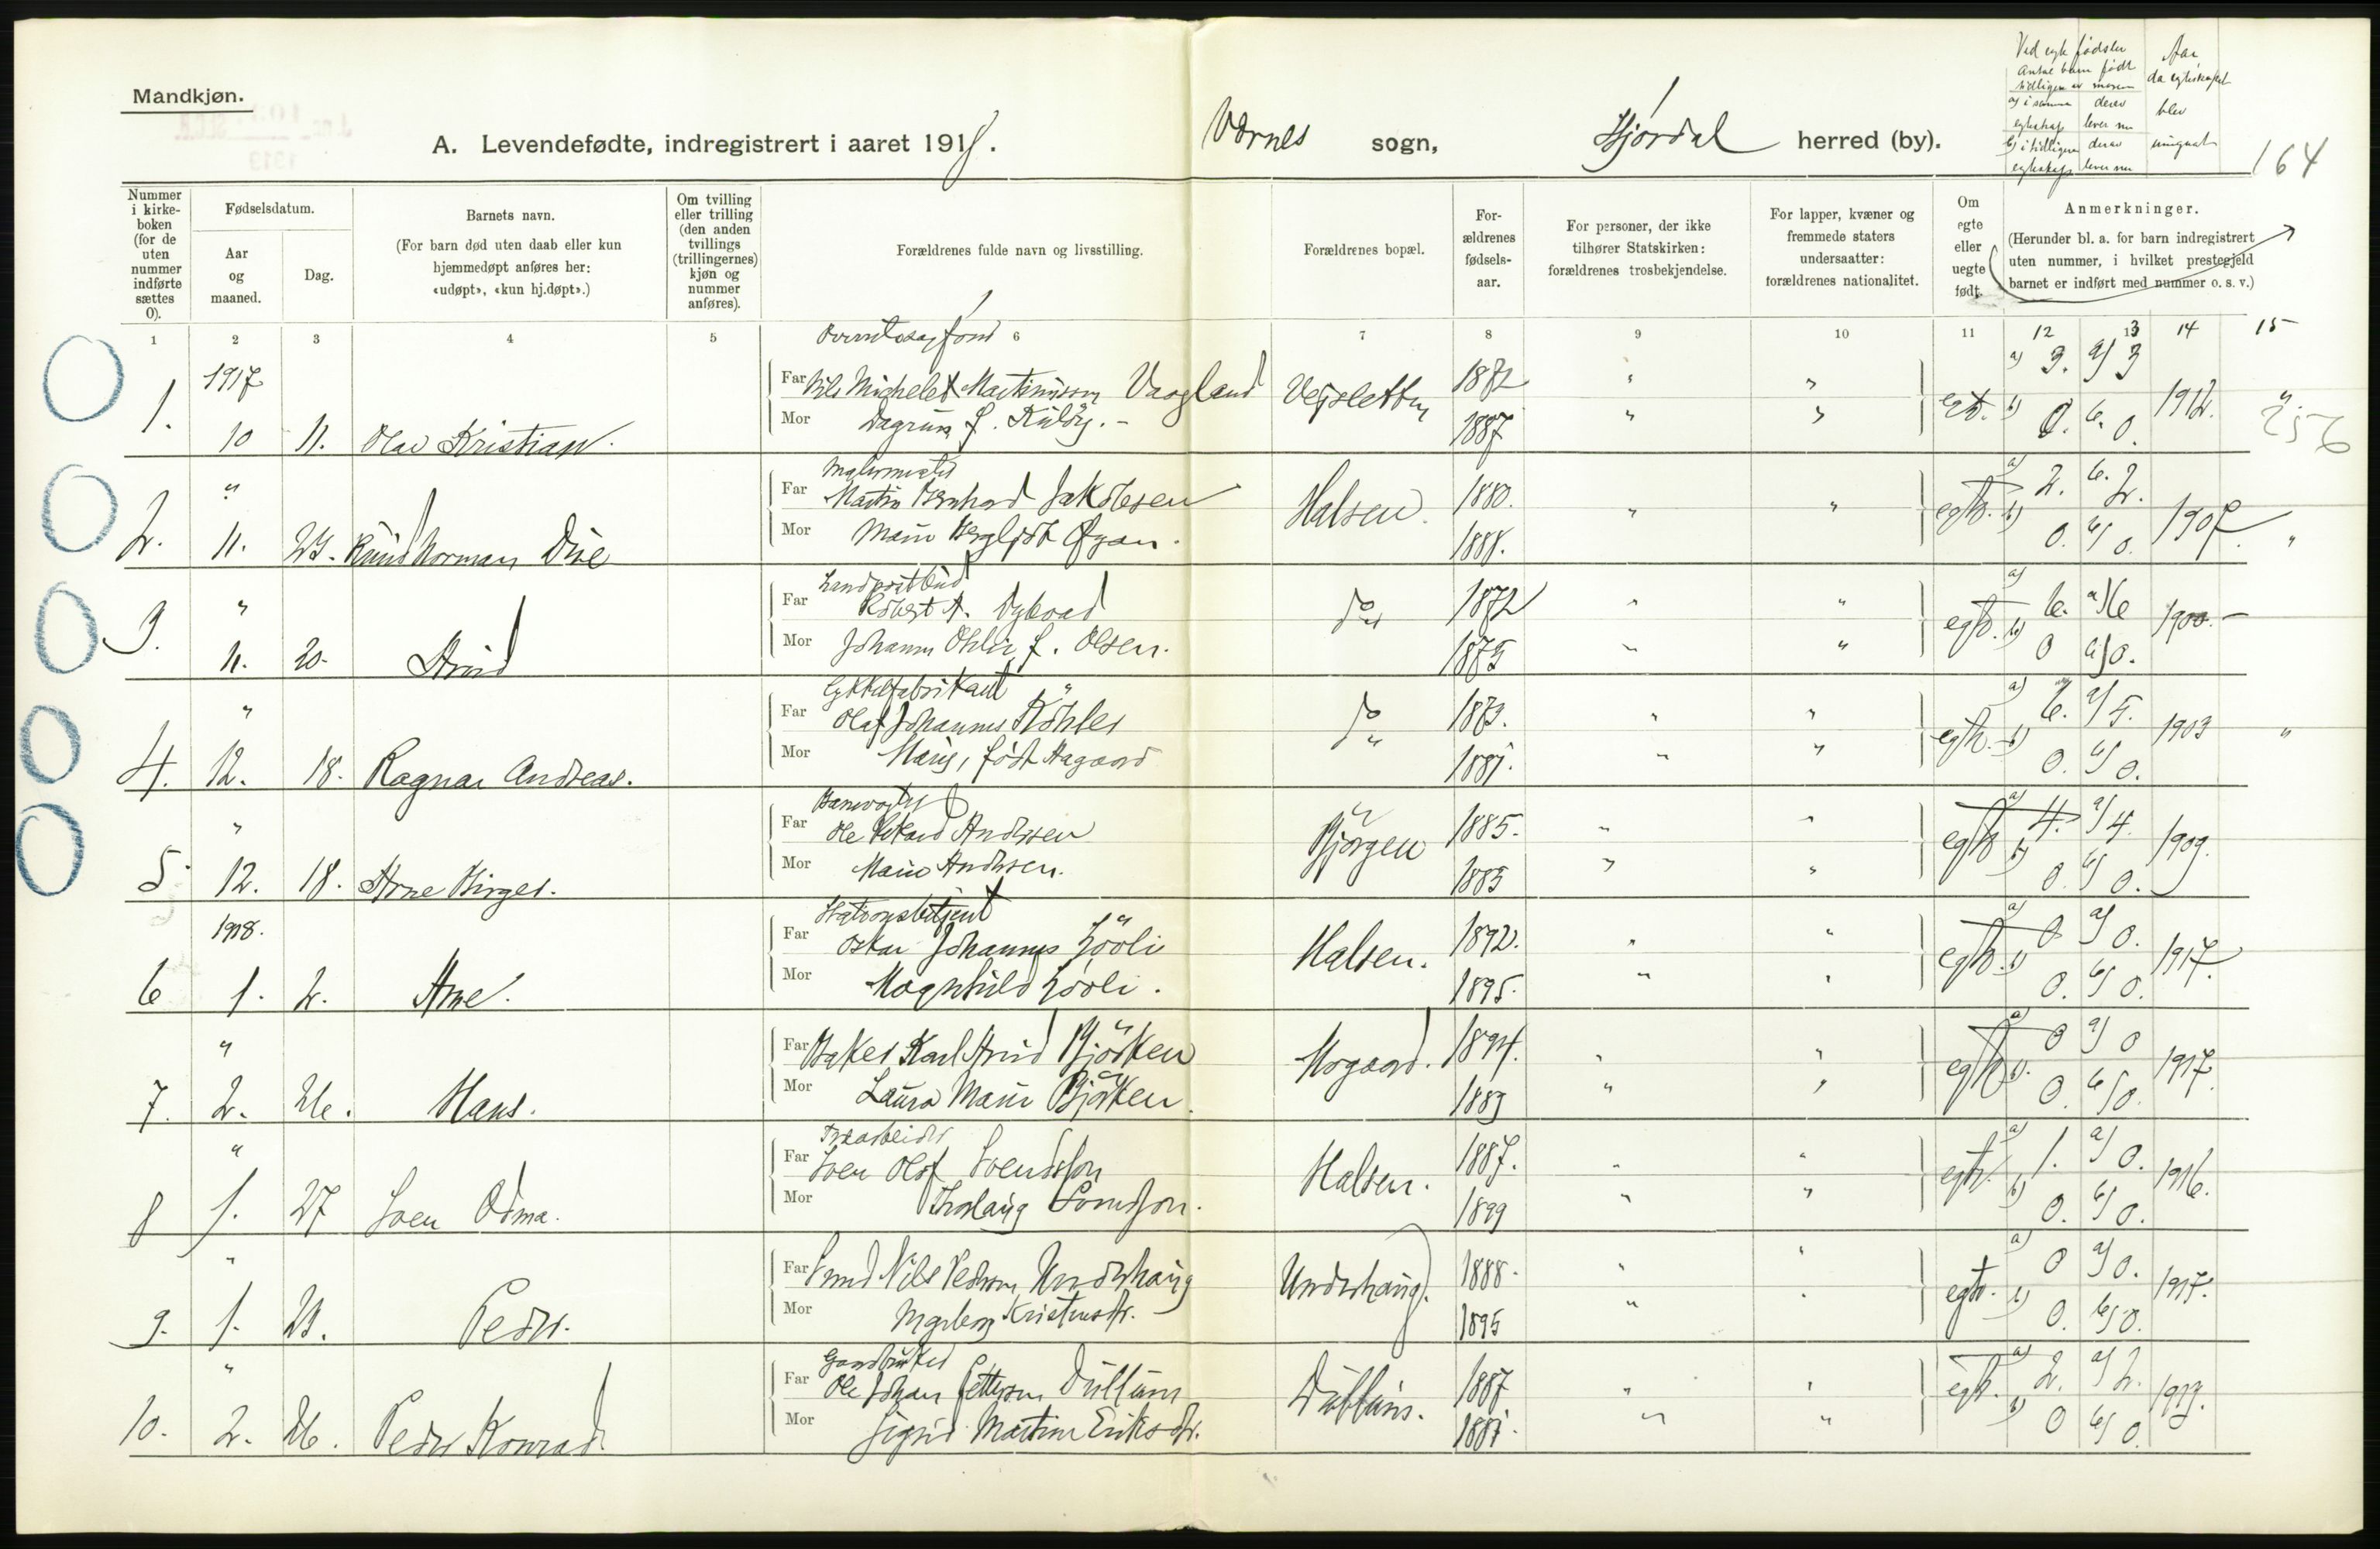 Mandkjøn.
A. Levendefødte, indregistrert i aaret 1918.
Værnes sogn, Stjørdal herred (by).
Aar
da egteskapet
blev
164
Nummer i kirkeboken (for de uten nummer indførte sættes 0).
Fødselsdatum.
Aar og maaned.
Dag.
Barnets navn.
(For barn død uten daab eller kun hjemmedøpt anføres her: «udøpt», «kun hj.døpt».)
Om tvilling eller trilling (den anden tvillings (trillingernes) kjøn og nummer anføres).
Forældrenes fulde navn og livsstilling.
Forældrenes bopæl.
Forældrenes fødselsaar.
For personer, der ikke tilhører Statskirken: forældrenes trosbekjendelse.
For lapper, kvæner og fremmede staters undersaatter: forældrenes nationalitet.
Om egte eller uegte født.
Anmerkninger.
(Herunder bl. a. for barn indregistrert uten nummer, i hvilket prestegjeld barnet er indført med nummer o. s. v.)
1 2 3 4 5 6 7 8 9 10 11 12 13 14 15
1917
Far Nils Martinussen Vaagland Vejsletten 1872 " " a) 3. a) 3
1. 10 11. Olav Kristian. Mor Dagrun f. 1887 " " egt. b) 0. b. 0. 1912. "
256
"
Far Martin Bernhard Jakobsen Halsen. 1880. a) 2. 2.
2. 11. Mor Marie Bergljot Øyan. 1888. " " egt. b) 0. b) 0. 1907. "
Landpostbud
" Far Robert A. Dybvad do 1872 " " a) 6. a) 6
3. 11. 20. Arvid Mor Johanna f. Olsen. 1875 " " egt. b) 0 0. 1900. –
Cykkelfabrikant
" Far Olaf Johannes Köhler do 1873. " " a) 6. a) 5.
4. 12. 18. Ragnar Andreas. Mor født Aagaard 1881. " " egt. b) 0. b) 0. 1903 "
Banevogter
" Far Ole Andersen Bjørgen 1885. " " a) 4. a) 4.
5. 12. 18. Arne Birger. Mor Marie Andersen. 1885 " " egt. b) 0. b) 0. 1909.
Stationsbetjent
1918. Far Oskar Johannes Lövli Halsen. 1892. " " a) 0 a) 0.
6 1. 2. Arne. Mor Magnhild Lövli. 1895. " " egt. b) 0. b) 0. 1917.
" Far Baker Karl Arvid Björken Mogaard. 1894. " " a) 0 a) 0
7. 2. 26. Hans. Mor Laura Marie Björken. 1889 " " egt. b) 0. b) 0. 1917.
" Far Sven Olof Svendsson Halsen. 1887. " " a) 1. a) 0.
8 1. 27 Sven Mor Svendsson. 1899 " " egt. b) 0. b) 0. 1916.
" Far Smed Nils Pedersen Undershaug Undershaug. 1888. " " a) 0 a) 0.
9. 1. 21. Peder. Mor Ingeborg Kristensdtr. 1895 " " egt. b) 0. b) 0. 1917.
Gaardbruker
" Far Ole Johan Pettersen Dullum Dullum. 1887. " " a) 2. a) 2.
10. 2. 26. Peder Konrad. Mor Sigrid Martine Eriksdtr. 1881. " " egt. b) 0 b) 0. 1913.